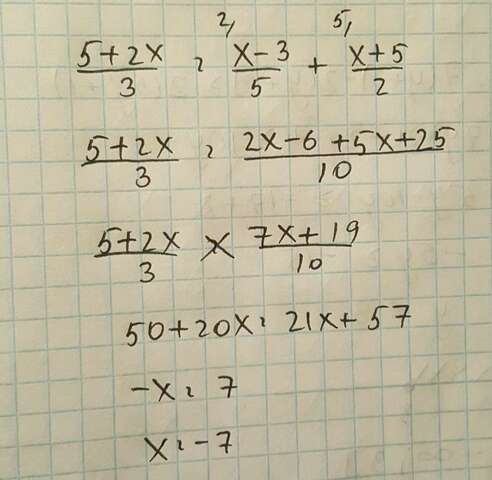 2, 5,
5+2x/3 = x-3/5 + x+5/2
5+2x/3 = 2x-6+5x+25/10
5+2x/3 × 7x+19/10
50+20x = 21x+57
-x = 7
x = -7